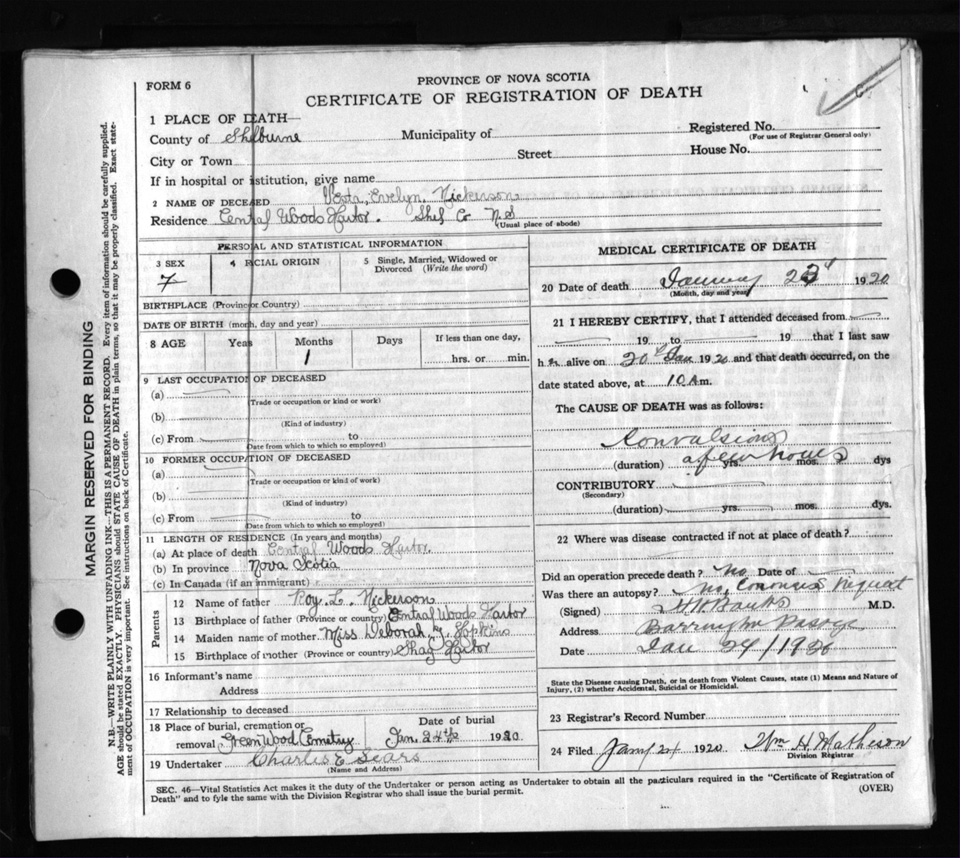 FORM 6
PROVINCE OF NOVA SCOTIA
CERTIFICATE OF REGISTRATION OF DEATH
1 PLACE OF DEATH—
County of Shelburne Municipality of Registered No.
(For use of Registrar General only)
City or Town Street House No.
If in hospital or institution, give name
2 NAME OF DECEASED Evelyn. Nickerson
Residence Central Woods Harbor. Shel Co N.S
(Usual place of abode)
PERSONAL AND STATISTICAL INFORMATION
3 SEX 4 RACIAL ORIGIN 5 Single, Married, Widowed or Divorced (Write the word)
F
BIRTHPLACE (Province or Country)
DATE OF BIRTH (month, day and year)
8 AGE Years Months Days If less than one day,
1 hrs. or min.
9 LAST OCCUPATION OF DECEASED
(a)
Trade or occupation or kind or work)
(b)
(Kind of industry)
(c) From to
(Date from which to which so employed)
10 FORMER OCCUPATION OF DECEASED
(a)
Trade or occupation or kind of work)
(b)
(Kind of industry)
(c) From to
(Date from which to which so employed)
11 LENGTH OF RESIDENCE (In years and months)
(a) At place of death Central Woods Harbor.
(b) In province Nova Scotia
(c) In Canada (if an immigrant)
Parents
12 Name of father Roy. L. Nickerson
13 Birthplace of father (Province or country) Central Woods Harbor
14 Maiden name of mother Miss Deborah Hopkins
15 Birthplace of mother (Province or country) Shag Harbor
16 Informant's name
Address
17 Relationship to deceased
18 Place of burial, cremation or removal Greenwood Cemetry
Date of burial Jan. 24th 1920.
19 Undertaker Charles E Sears
(Name and Address)
MEDICAL CERTIFICATE OF DEATH
20 Date of death January 23 1920
(Month, day and year)
21 I HEREBY CERTIFY, that I attended deceased from
19 to 19 that I last saw
h er alive on 20 Jan 1920 and that death occurred, on the
date stated above, at 10 A m.
The CAUSE OF DEATH was as follows:
Convulsions
(duration) a few hours yrs. mos. dys
CONTRIBUTORY
(Secondary)
(duration) yrs. mos. dys.
22 Where was disease contracted if not at place of death?
Did an operation precede death? No Date of
Was there an autopsy? No, Coroners request
(Signed) Banks M.D.
Address Barrington Passage
Date Jan 24/1920
State the Disease causing Death, or in death from Violent Causes, state (1) Means and Nature of
Injury, (2) whether Accidental, Suicidal or Homicidal.
23 Registrar's Record Number
24 Filed Jany 24 1920. Wm H. Matheson
Division Registrar
SEC. 46—Vital Statistics Act makes it the duty of the Undertaker or person acting as Undertaker to obtain all the particulars required in the "Certificate of Registration of
Death" and to fyle the same with the Division Registrar who shall issue the burial permit.
(OVER)
MARGIN RESERVED FOR BINDING
N.B—WRITE PLAINLY WITH UNFADING INK—THIS IS A PERMANENT RECORD. Every item of information should be carefully supplied.
AGE should be stated EXACTLY. PHYSICIANS should STATE CAUSE OF DEATH in plain terms, so that it may be properly classified. Exact statement
of OCCUPATION is very important. See instructions on back of Certificate.